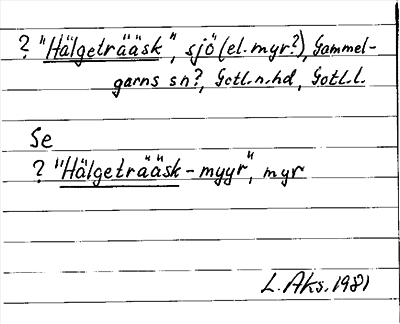 ? "Hälgeträäsk", sjö (el. myr?), Gammel-
garns sn?, Gotl. n. hd, Gotl. l.
Se
? "Hälgeträäsk-myyr", myr
L. Aks. 1981